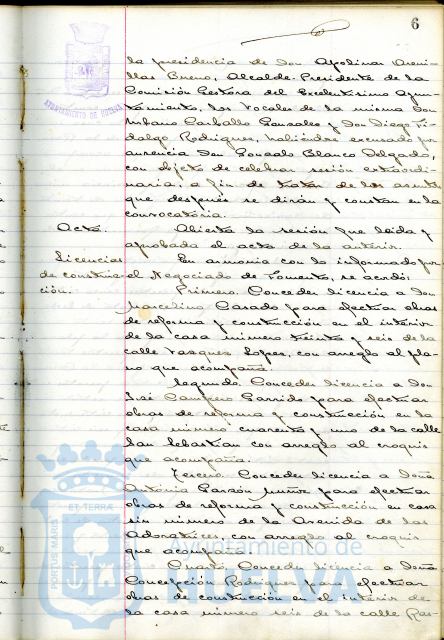 6
la presidencia de don Apolinar Areni-
llas Bueno, Alcalde-Presidente de la
Comisión Gestora del Excelentísimo Ayun-
tamiento, los Vocales de la misma Don
Urbano Carballo Gonzalez y Don Diego Fi-
dalgo Rodriguez, habiéndose excusado por
ausencia Don Gonzalo Blanco Delgado,
con objeto de celebrar sesión extraordi-
naria, a fin de tratar de los asuntos
que después se dirán y constan en la
convocatoria.
Acta. Abierta la sesión fue leida y
aprobada el acta de la anterior.
Licencias En armonia con lo informado por
de construc- el Negociado de Fomento, se acordó:
ción. Primero. Conceder licencia a Don
Marcelino Casado para efectuar obras
de reforma y construcción en el interior
de la casa número treinta y seis de la
calle Vasquez Lopez, con arreglo al pla-
no que acompaña.
Segundo. Conceder licencia a Don
José Garrido para efectuar
obras de reforma y construcción en la
casa número cuarenta y uno de la calle
San Sebastian con arreglo al croquis
que acompaña.
Tercero. Conceder licencia a Doña
Antonia Garzón para efectuar
obras de reforma y construcción en casa
sin número de la Avenida de las
Adoratrices, con arreglo al croquis
que acompaña.
Cuarto. Conceder licencia a Doña
Concepción Rodriguez para efectuar
obras de construcción en el interior de
la casa número seis de la calle Ras-
AYUNTAMIENTO DE HUELVA
PORTUS MARIS ET TERRAE
Ayuntamiento de
HUELVA